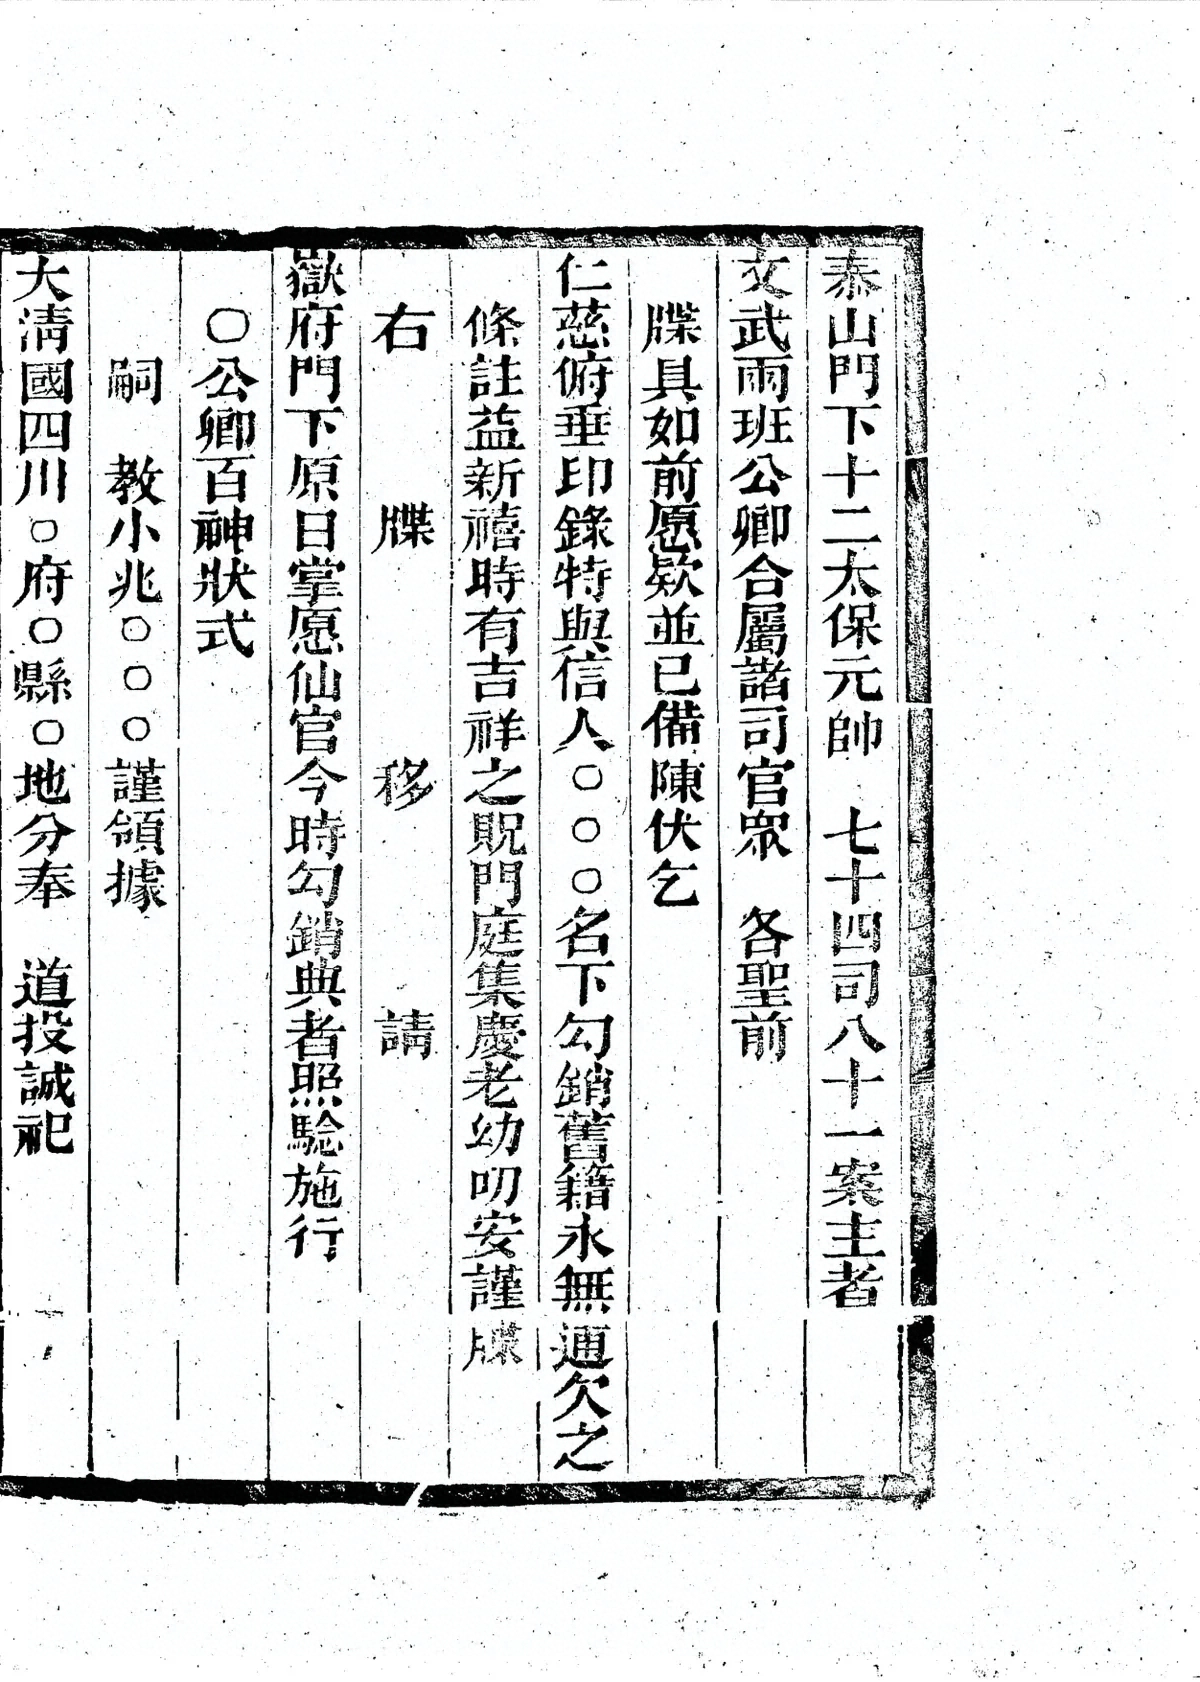 泰山門下十二太保元帥　七十四司八十一案主者
文武兩班公卿合屬諸司官眾　各聖前
牒具如前愿欵並已備陳伏乞
仁慈俯垂印錄特與信人○○○名下勾銷舊籍永無逋欠之
條註益新禧時有吉祥之貺門庭集慶老幼叨安謹牒
右　牒　移　請
嶽府門下原日掌愿仙官今時勾銷典者照驗施行
○公卿百神狀式
嗣　教小兆○○○謹領據
大淸國四川○府○縣○地分奉　道投誠祀